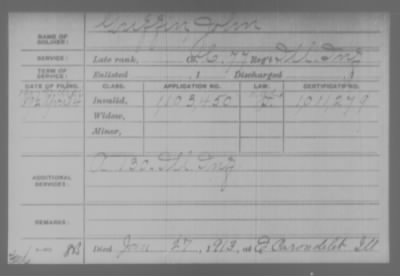 NAME OF SOLDIER: Griffin, John
SERVICE: Late rank, Co. G, 77 Reg't Ill. Inf.
TERM OF SERVICE: Enlisted , 1 Discharged , 1
DATE OF FILING. CLASS. APPLICATION NO. LAW. CERTIFICATE NO.
Invalid, 1103,450 1011,279
Widow,
Minor,
ADDITIONAL SERVICES: 130 Ill. Inf.
REMARKS:
Died Jan 27, 1913, at E Carondelet Ill